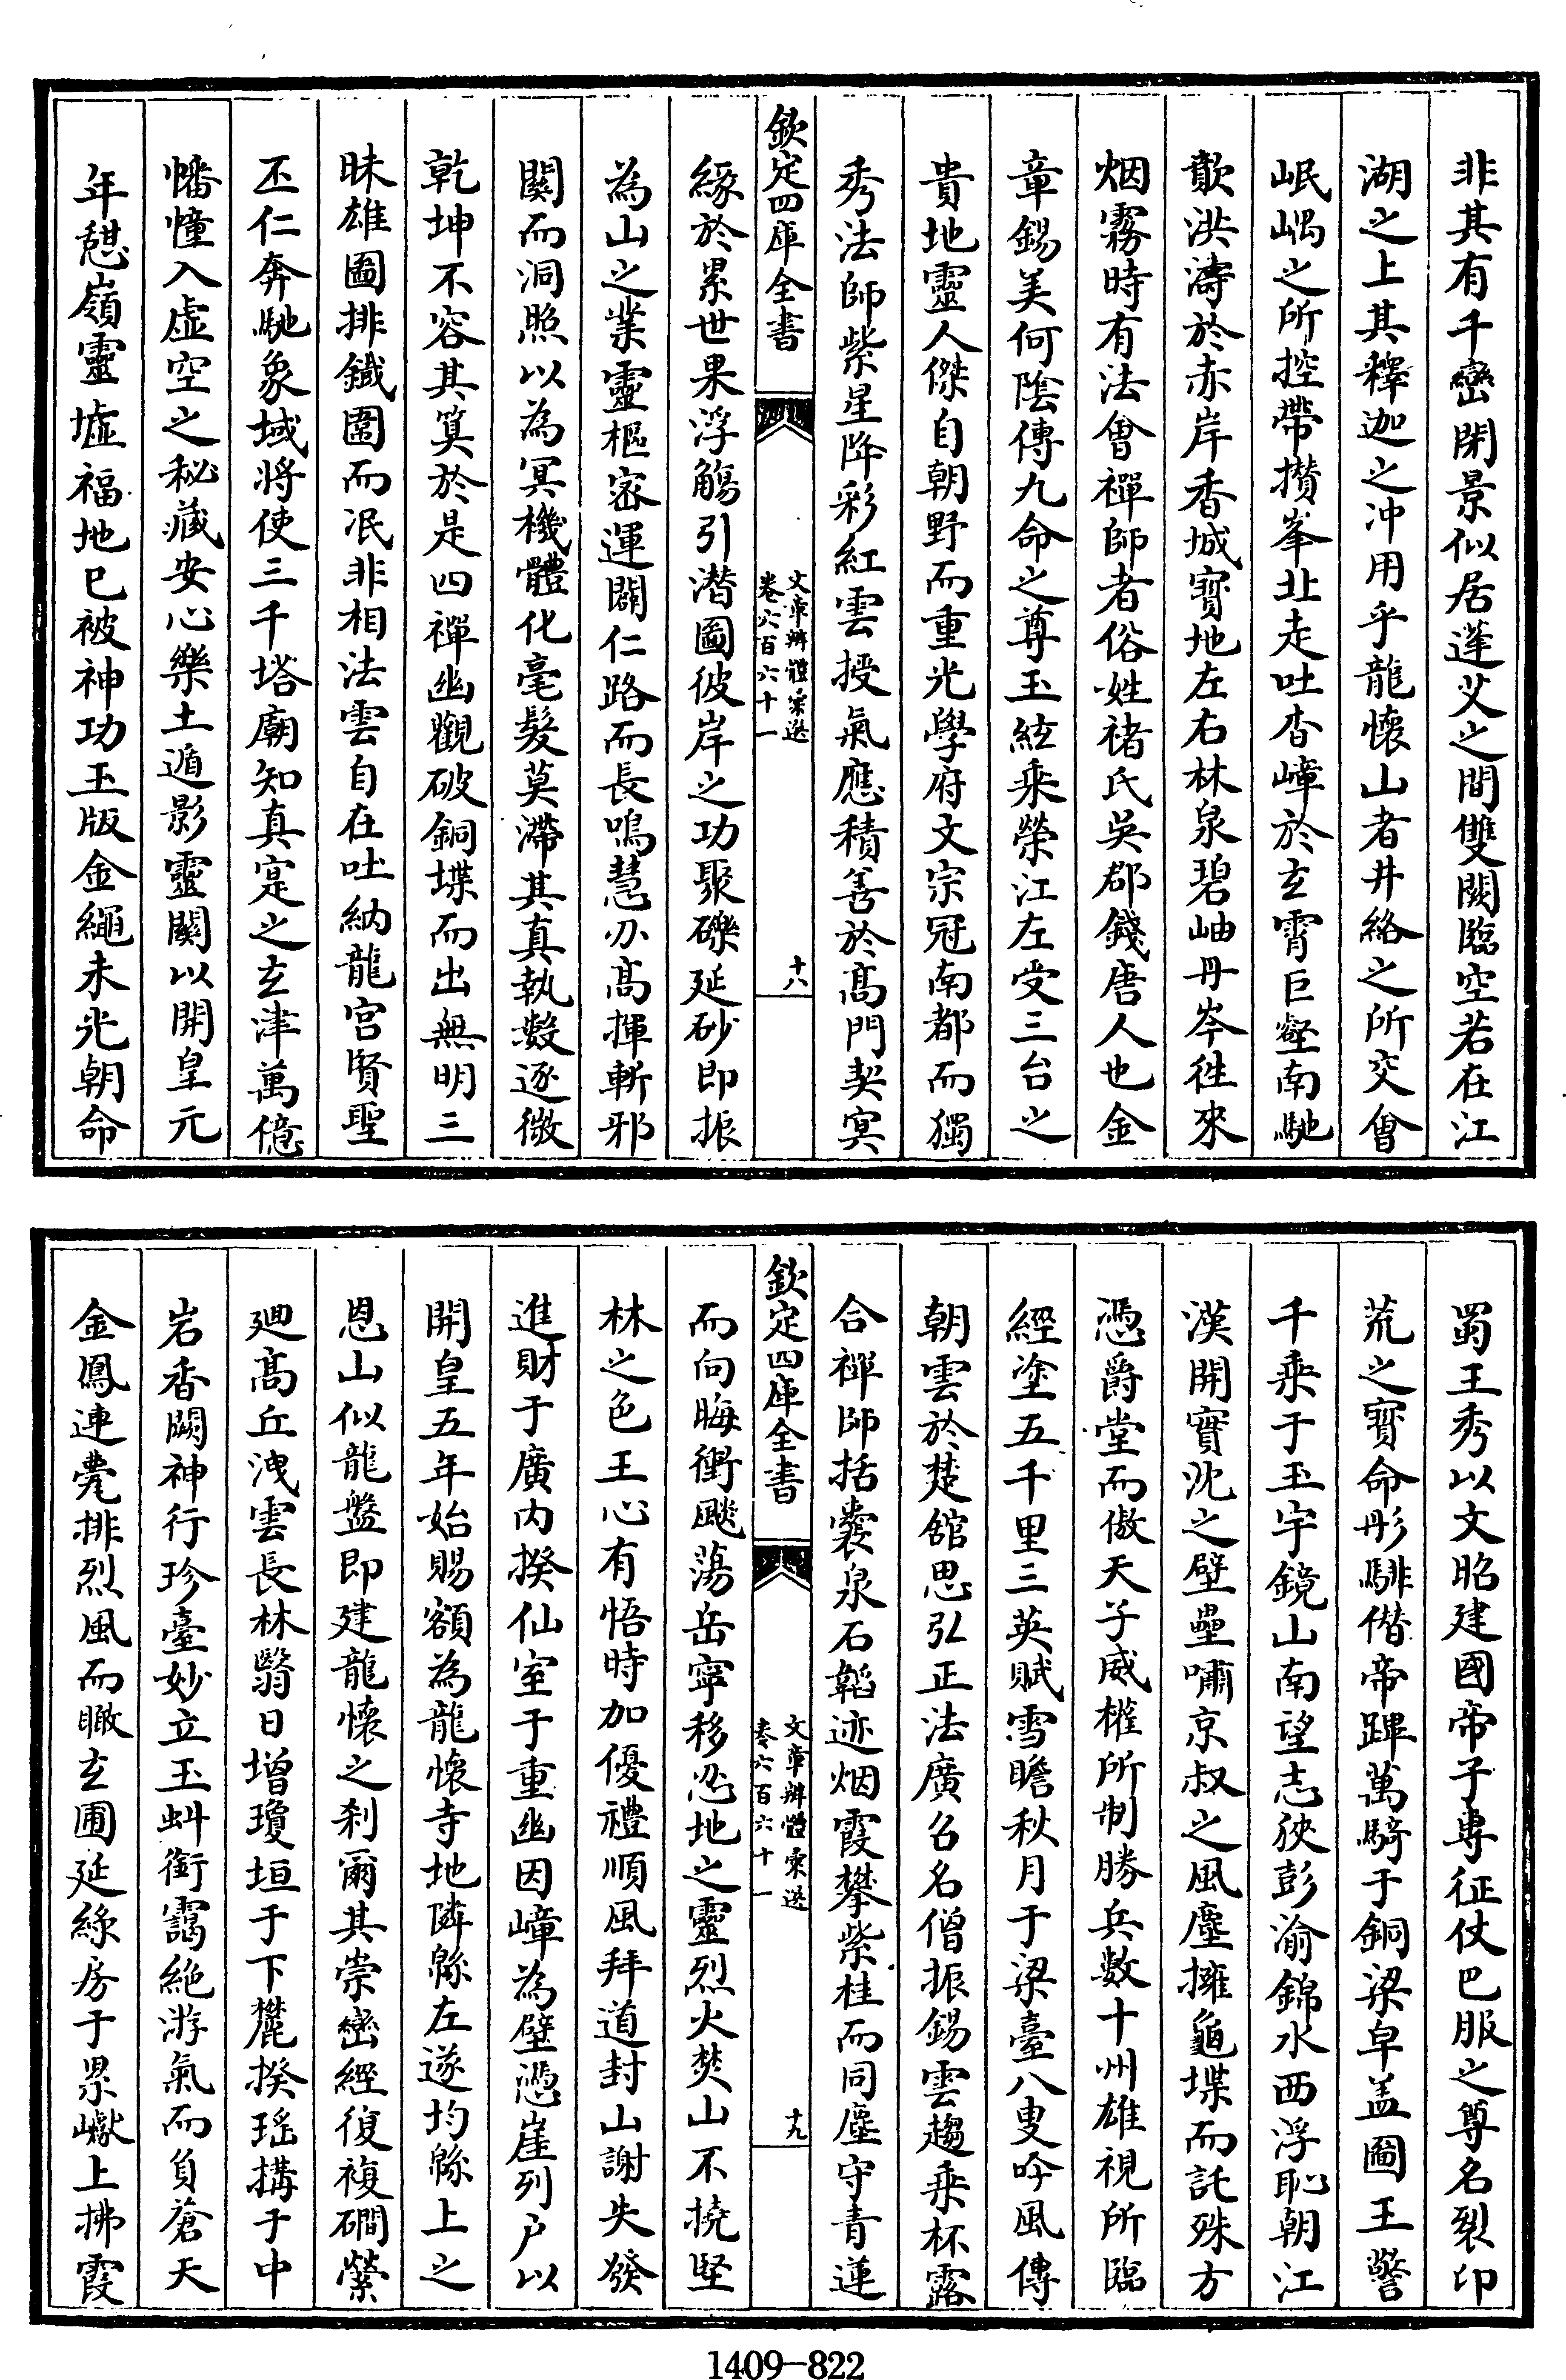 非其有千巒閉景似居蓬艾之間雙闕臨空若在江
湖之上其釋迦之冲用乎龍懷山者井絡之所交會
岷嵎之所控帶攅峯北走吐杳嶂於玄霄巨壑南馳
歕洪濤於赤岸香城寳地左右林泉碧岫丹岑徃來
烟霧時有法會禪師者俗姓褚氏吳郡錢唐人也金
章錫美何陰傳九命之尊玉絃乘榮江左受三台之
貴地靈人傑自朝野而重光學府文宗冠南都而獨
秀法師紫星降彩紅雲授氣應積善於髙門契㝠
欽定四庫全書
文章辨體彚選
卷六百六十一
十八
緣於累世果浮觴引潛圖彼岸之功聚礫延砂即振
為山之業靈樞宻運闢仁路而長鳴慧刅髙揮斬邪
關而洞照以為冥機體化毫髮莫滯其真執數逐微
乾坤不容其筭於是四禪幽觀破銅堞而出無明三
昧雄圖排鐵圍而冺非相法雲自在吐納龍宫賢聖
丕仁奔馳象域將使三千塔廟知真寔之玄津萬億
幡幢入虚空之秘藏安心樂土遁影靈關以開皇元
年憇嶺靈墟福地已被神功玉版金繩未光朝命
蜀王秀以文昭建國帝子專征仗巴服之尊名裂印
荒之寳命彤騑偕帝蹕萬騎于銅梁皁盖圖王警
千乘于玉宇鏡山南望志陿彭渝錦水西浮恥朝江
漢開實沈之壁壘嘯京叔之風塵擁龜堞而託殊方
憑爵堂而傲天子威權所制勝兵數十州雄視所臨
經塗五千里三英賦雪瞻秋月于梁臺八叟吟風傳
朝雲於楚舘思弘正法廣召名僧振錫雲趨乘杯露
合禪師括囊泉石韜迹烟霞攀紫桂而同塵守青蓮
欽定四庫全書
文章辨體彚選
卷六百六十一
十九
而向晦衝颷蕩岳寧移忍地之靈烈火焚山不撓堅
林之色王心有悟時加優禮順風拜道封山謝失發
進財于廣内揆仙室于重幽因嶂為壁憑崖列户以
開皇五年始賜額為龍懷寺地隣緜左遂均緜上之
恩山似龍盤即建龍懷之刹爾其崇巒經復複磵縈
廻髙丘洩雲長林翳日增瓊垣于下麓揆瑶搆于中
岩香闕神行珍臺妙立玉虯銜靄絶游氣而負蒼天
金鳳連甍排烈風而瞰玄圃延綠房于累巘上拂霞
1409—822